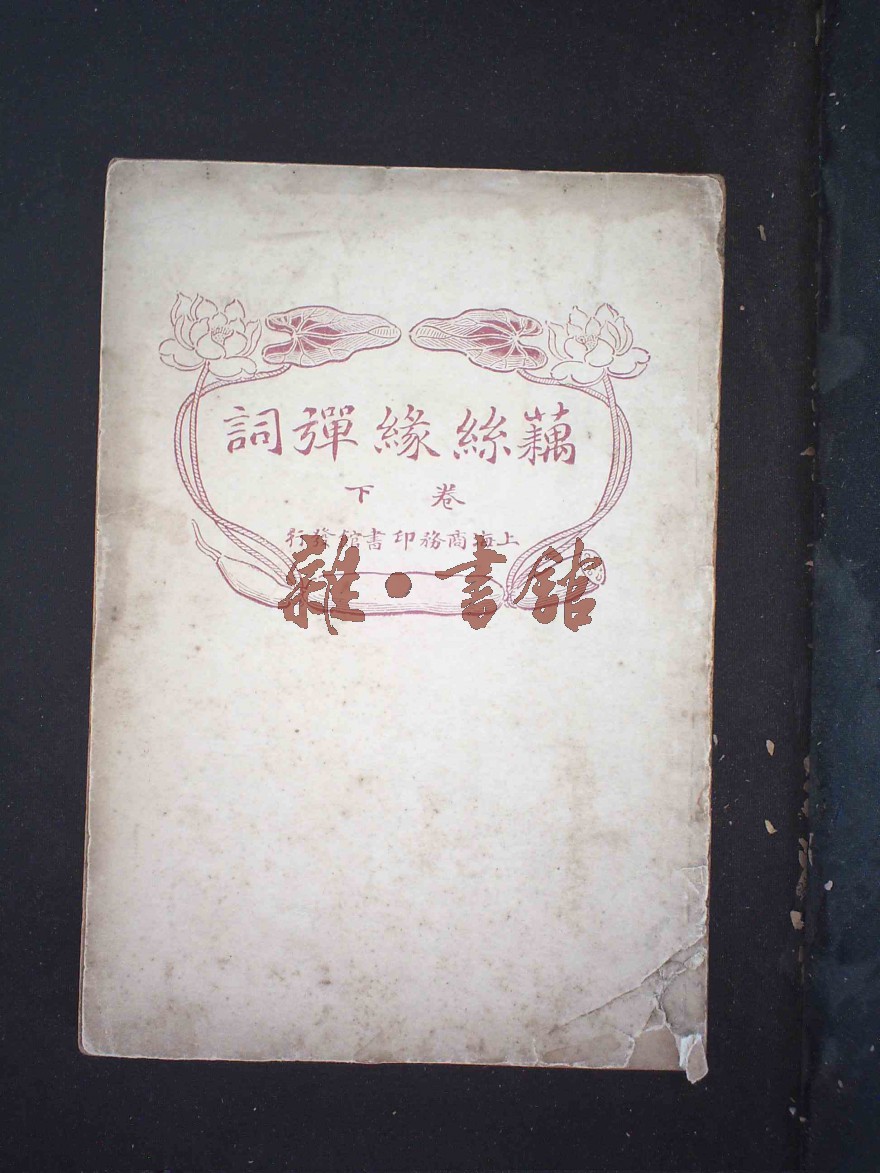 藕絲緣彈詞
卷下
上海商務印書館發行
雜·書館